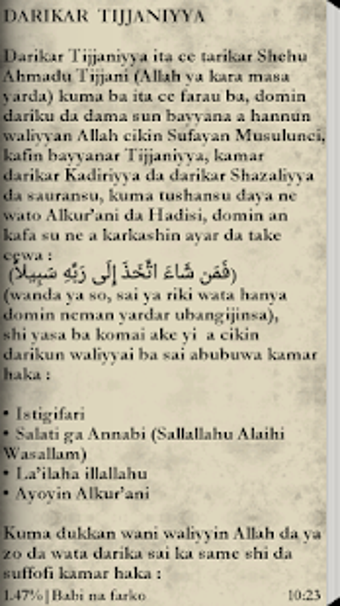 DARIKAR TIJJANIYYA
Darikar Tijjaniyya ita ce tarikar Shehu
Ahmadu Tijjani (Allah ya kara masa
yarda) kuma ba ita ce farau ba, domin
dariku da dama sun bayyana a hannun
waliyyan Allah cikin Sufayan Musulunci,
kafin bayyanar Tijjaniyya, kamar
darikar Kadiriyya da darikar Shazaliyya
da sauransu, kuma tushansu daya ne
wato Alkur'ani da Hadisi, domin an
kafa su ne a karkashin ayar da take
cewa :
(فَمَن شَاءَ اتَّخَذَ إِلَى رَبِّهِ سَبِيلاً)
(wanda ya so, sai ya riki wata hanya
domin neman yardar ubangijinsa),
shi yasa ba komai ake yi a cikin
darikun waliyyai ba sai abubuwa kamar
haka :
• Istigifari
• Salati ga Annabi (Sallallahu Alaihi
Wasallam)
• La'ilaha illallahu
• Ayoyin Alkur'ani
Kuma dukkan wani waliyyin Allah da ya
zo da wata darika sai ka same shi da
suffofi kamar haka :
1.47%|Babi na farko 10:23